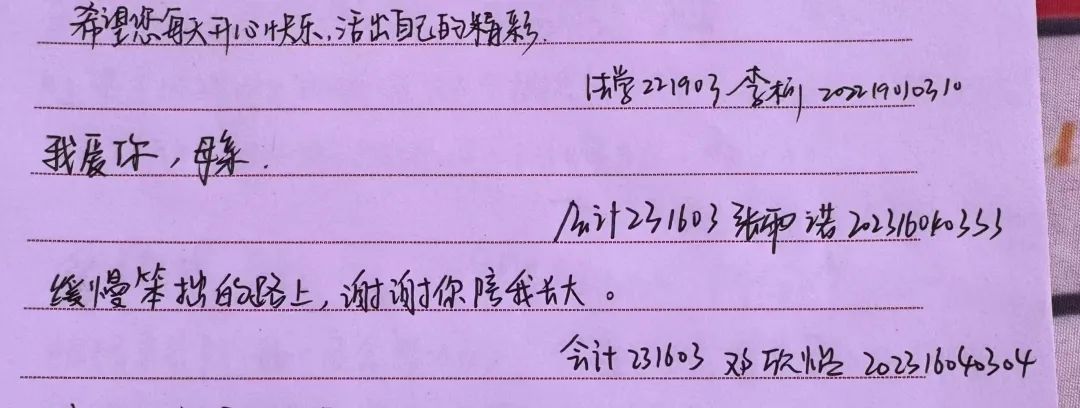 希望您每天开心快乐,活出自己的精彩.
法学221903 李栎 202219010310
我爱你,母亲.
会计231603 张雨诺 202316040333
缓慢笨拙的路上,谢谢你陪我长大。
会计231603 邓欣怡 202316040304